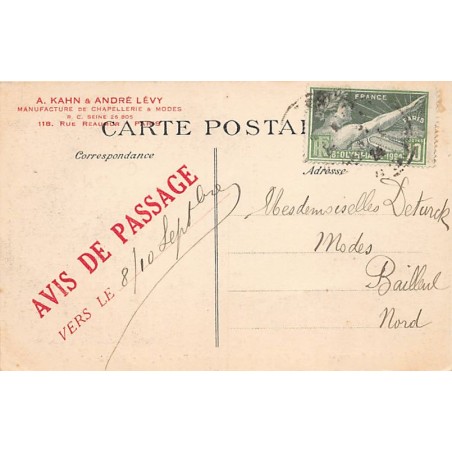 A. KAHN & ANDRÉ LÉVY
MANUFACTURE DE CHAPELLERIE & MODES
R. C. SEINE 25 805
118, RUE RÉAUMUR - PARIS
CARTE POSTAL
Correspondance
Adresse
FRANCE
PARIS
8e OLYMPIADE 1924
AVIS DE PASSAGE
VERS LE 8/10 Septbre
Mesdemoiselles Deturck
Modes
Bailleul
Nord